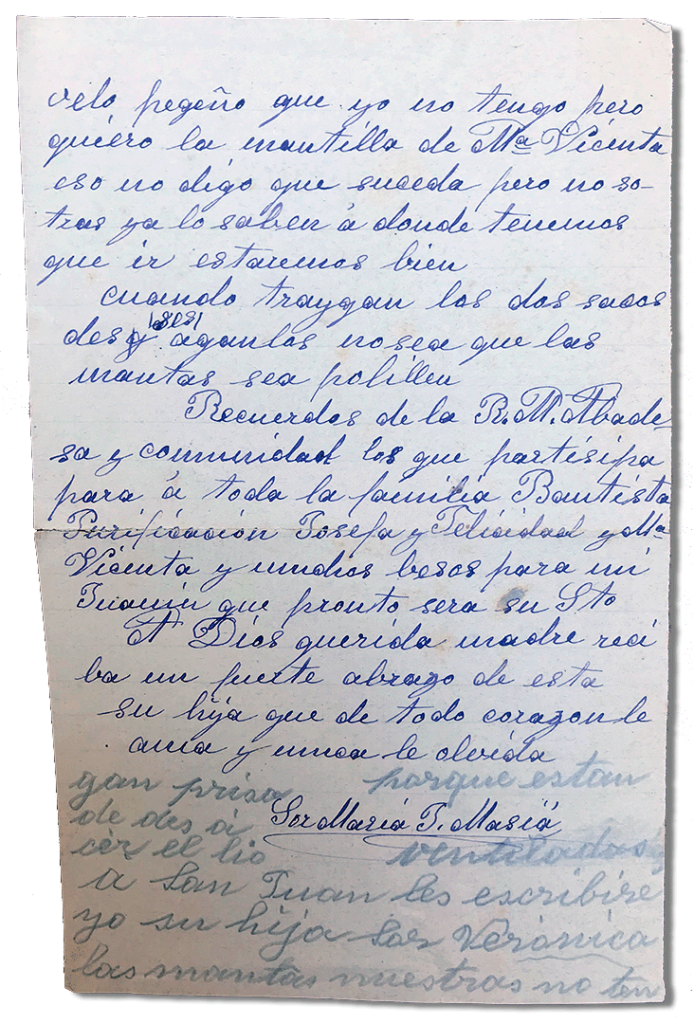 velo pegeño que yo no tengo pero
quiero la mantilla de Mª Vicenta
eso no digo que suceda pero no so-
tras ya lo saben á donde tenemos
que ir estaremos bien
cuando traygan los dos sacos
des y áganlos no sea que las
mantas sea polillen
Recuerdos de la R. M. Abade
sa y comunidad los que partisipa
para á toda la familia Bautista
Purificación Josefa y Felicidad y Mª
Vicenta y muchos besos para mi
Juanin que pronto sera su Sto
A Dios querida madre reci
ba un fuerte abrazo de esta
su hija que de todo corazon le
ama y nunca le olvida
Sor María T. Masiá
gan prisa porque estan
de des á
cer el lio ventiladas y
a San Juan les escribire
yo su hija Sor Verónica
las mantas nuestras no ten